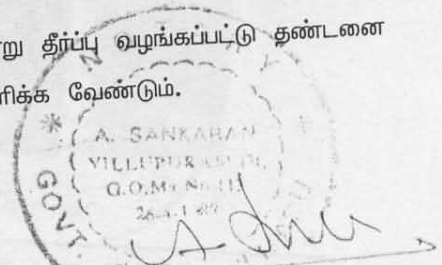 று தீர்ப்பு வழங்கப்பட்டு தண்டனை
ரிக்க வேண்டும்.
A. SANKARAN
VILLUPURAM
G.O.Ms No.
GOVT.